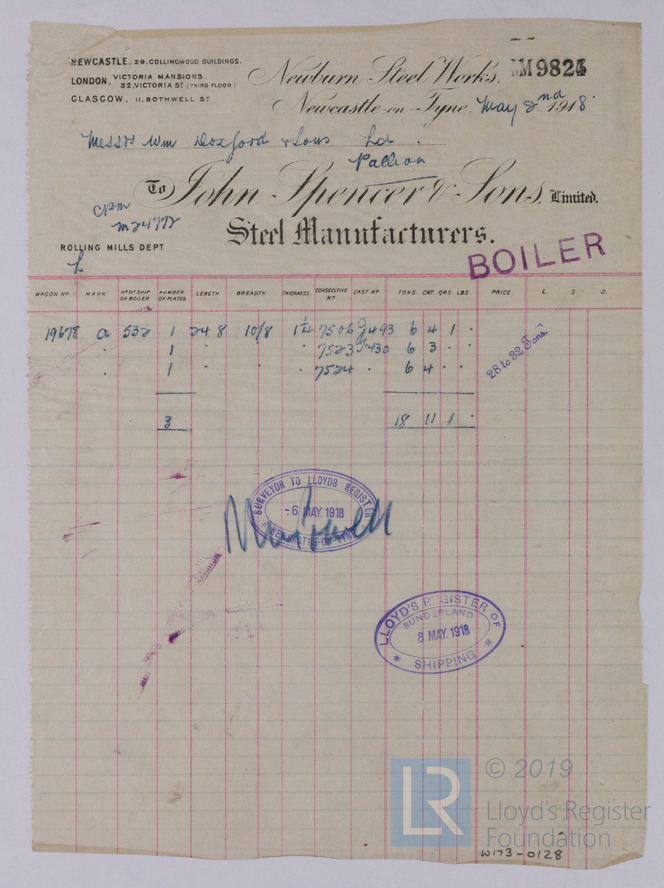 NEWCASTLE, 29, COLLINGWOOD BUILDINGS.
LONDON, VICTORIA MANSIONS, 32, VICTORIA ST (THIRD FLOOR)
GLASGOW, 11, BOTHWELL ST
Newburn Steel Works,
M 9824
Newcastle-on-Tyne, May 2nd 1918
Messrs Wm Doxford & Sons Ld.
Pallion
To John Spencer & Sons, Limited.
Steel Manufacturers.
ROLLING MILLS DEPT
BOILER
WAGON No MARK No OF SHIP OR BOILER NUMBER OF PLATES LENGTH BREADTH THICKNESS CONSECUTIVE No CAST No TONS. CWT. QRS. LBS. PRICE. £ S. D.
19678 a 532 1 24 8 10/8 1¼ 7506 493 6 4 1 .
. . 1 . . . 7523 430 6 3 . .
. . 1 . . . 7524 . 6 4 . .
28 to 32 Tons.
3 18 11 1 .
SURVEYOR TO LLOYDS REGISTER
-6 MAY. 1918
NEWCASTLE-ON-TYNE
LLOYD'S REGISTER OF
SUNDERLAND
8 MAY. 1918
* SHIPPING *
LR
© 2019
Lloyd's Register
Foundation
W173-0128